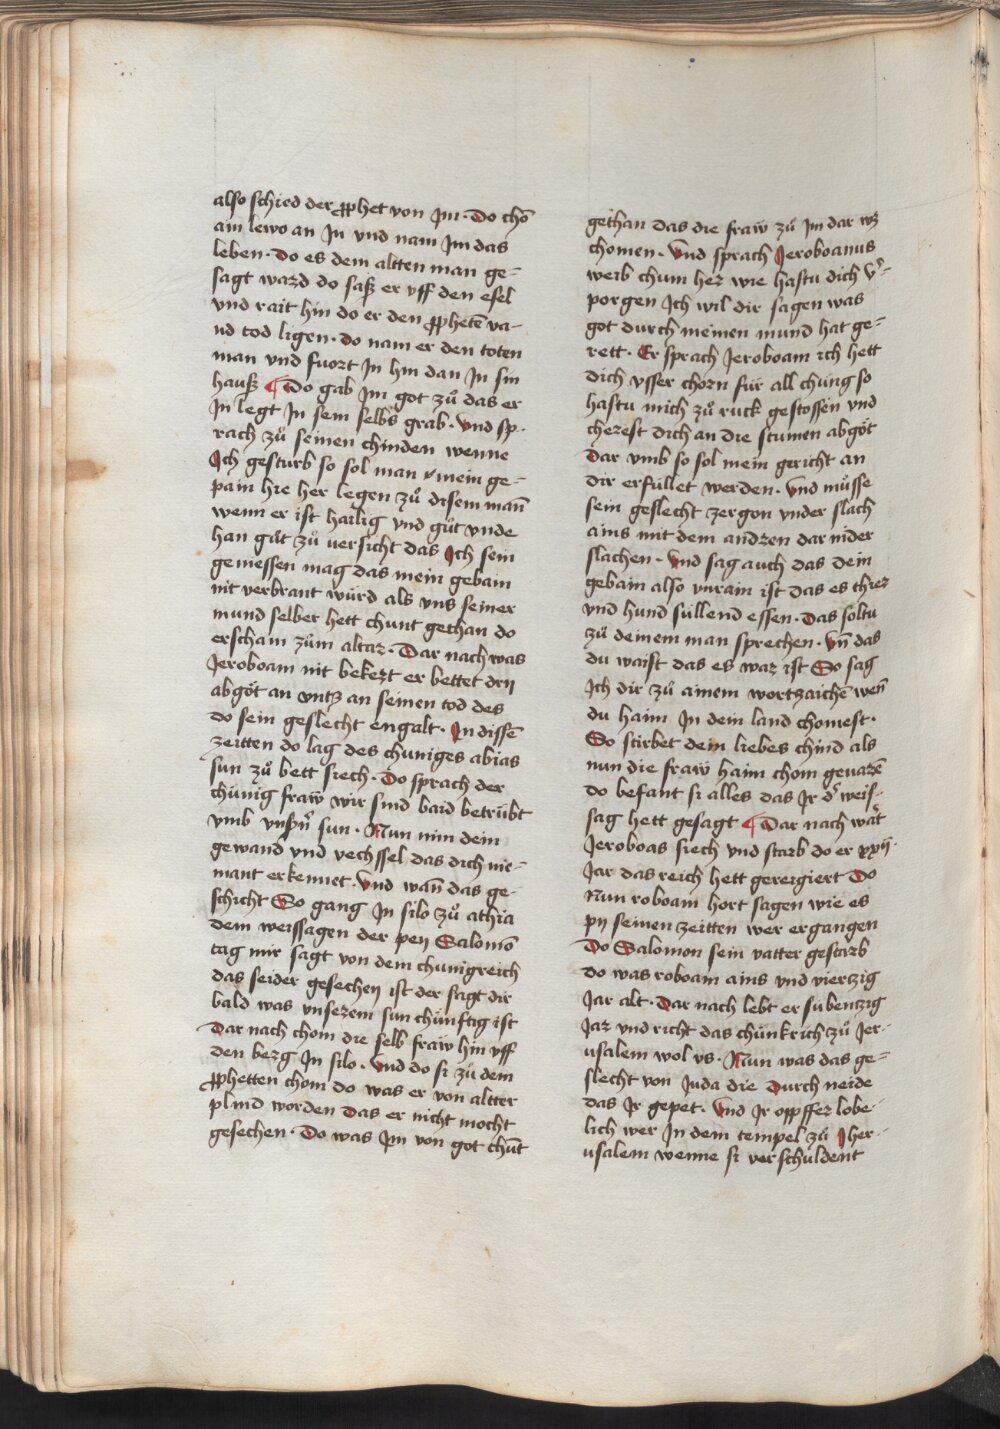 also schied der pphet von jm · Do chō
ain lewo an Jn vnd nam Jm das
leben · Do es dem altten man ge=
sagt ward do saß er vff den esel
vnd rait hin do er den pphetē va-
nd tod ligen · Do nam er den toten
man vnd fuort Jn hin dan Jn sin
hauß ¶ Do gab Jm got zů das er
Jn legt Jn sein selbs grab · vnd sp-
rach zů seinen chinden wenne
Ich gesturb so sol man mein ge=
pain hie her legen zů disem mañ
wenn er ist hailig vnd gůt vnde
han gůt zů uersicht das Ich sein
geniessen mag das mein gebain
nit verbrant würd als vns seiner
mund selber hett chunt gethan do
erscham zům altar · Dar nach was
Jeroboam nit bekert er bettet drij
abgöt an vntz an seinen tod des
do sein geslecht engalt · Jn dissē
zeitten do lag des chuniges abias
sun zů bett siech · Do sprach der
chünig fraw wir sind baid betrübt
vmb sun · Nun nim dein
gewand vnd vechssel das dich nie=
mant erkennet · Vnd wañ das ge-
schicht So gang Jn silo zů athia
dem weissagen der peij Salomō
tag mir sagt von dem chunigreich
das seider gesechen ist der sagt dir
bald was vnserem sun chünftig ist
Dar nach chom die selb fraw hin vff
den berg Jn silo · Vnd do si zů dem
pphetten chom do was er von altter
plind worden das er nicht mocht
gesechen · Do was Jm von got chūt
gethan das die fraw zů Jm dar wz
chomen · Vnd sprach Jeroboanus
weib chum her wie hastu dich v̉=
porgen Ich wil dir sagen was
got durch meinen mund hat ge=
rett · Er sprach Jeroboam ich hett
dich vsser chorn für all chüng so
hastu mich zů ruck gestossen vnd
cherest dich an die stumen abgöt
Dar vmb so sol mein gericht an
dir erfüllet werden · Vnd müsse
sein geslecht zergon vnder slach
ains mit dem andren dar nider
slachen · Vnd sag auch das dein
gebain also vnrain ist das es thier
vnd hund süllend essen · Das soltu
zů deinem man sprechen · Vñ das
du waist das es war ist So sag
Ich dir zů ainem wortzaichē weñ
du haim Jn dein land chomest ·
So stirbet dein liebes chind als
nun die fraw haim chom geuarē
do befant si alles das Jr d̉ weis-
sag hett gesagt ¶ Dar nach wᵃt
Jeroboas siech vnd starb do er xxij ·
Jar das reich hett gereigiert Do
Nun roboam hort sagen wie es
pij seinen zeitten wer ergangen
Do Salomon sein vatter gestarb
do was roboam ains vnd viertzig
Jar alt · Dar nach lebt er subentzig
Jar vnd richt das chünkrich zů Jer-
usalem wol vs · Nun was das ge=
slecht von Juda die Durch neide
das Jr gepet · Vnd Jr oppffer lobe-
lich wer Jn dem tempel zů Jher-
usalem wenne si verschuldent